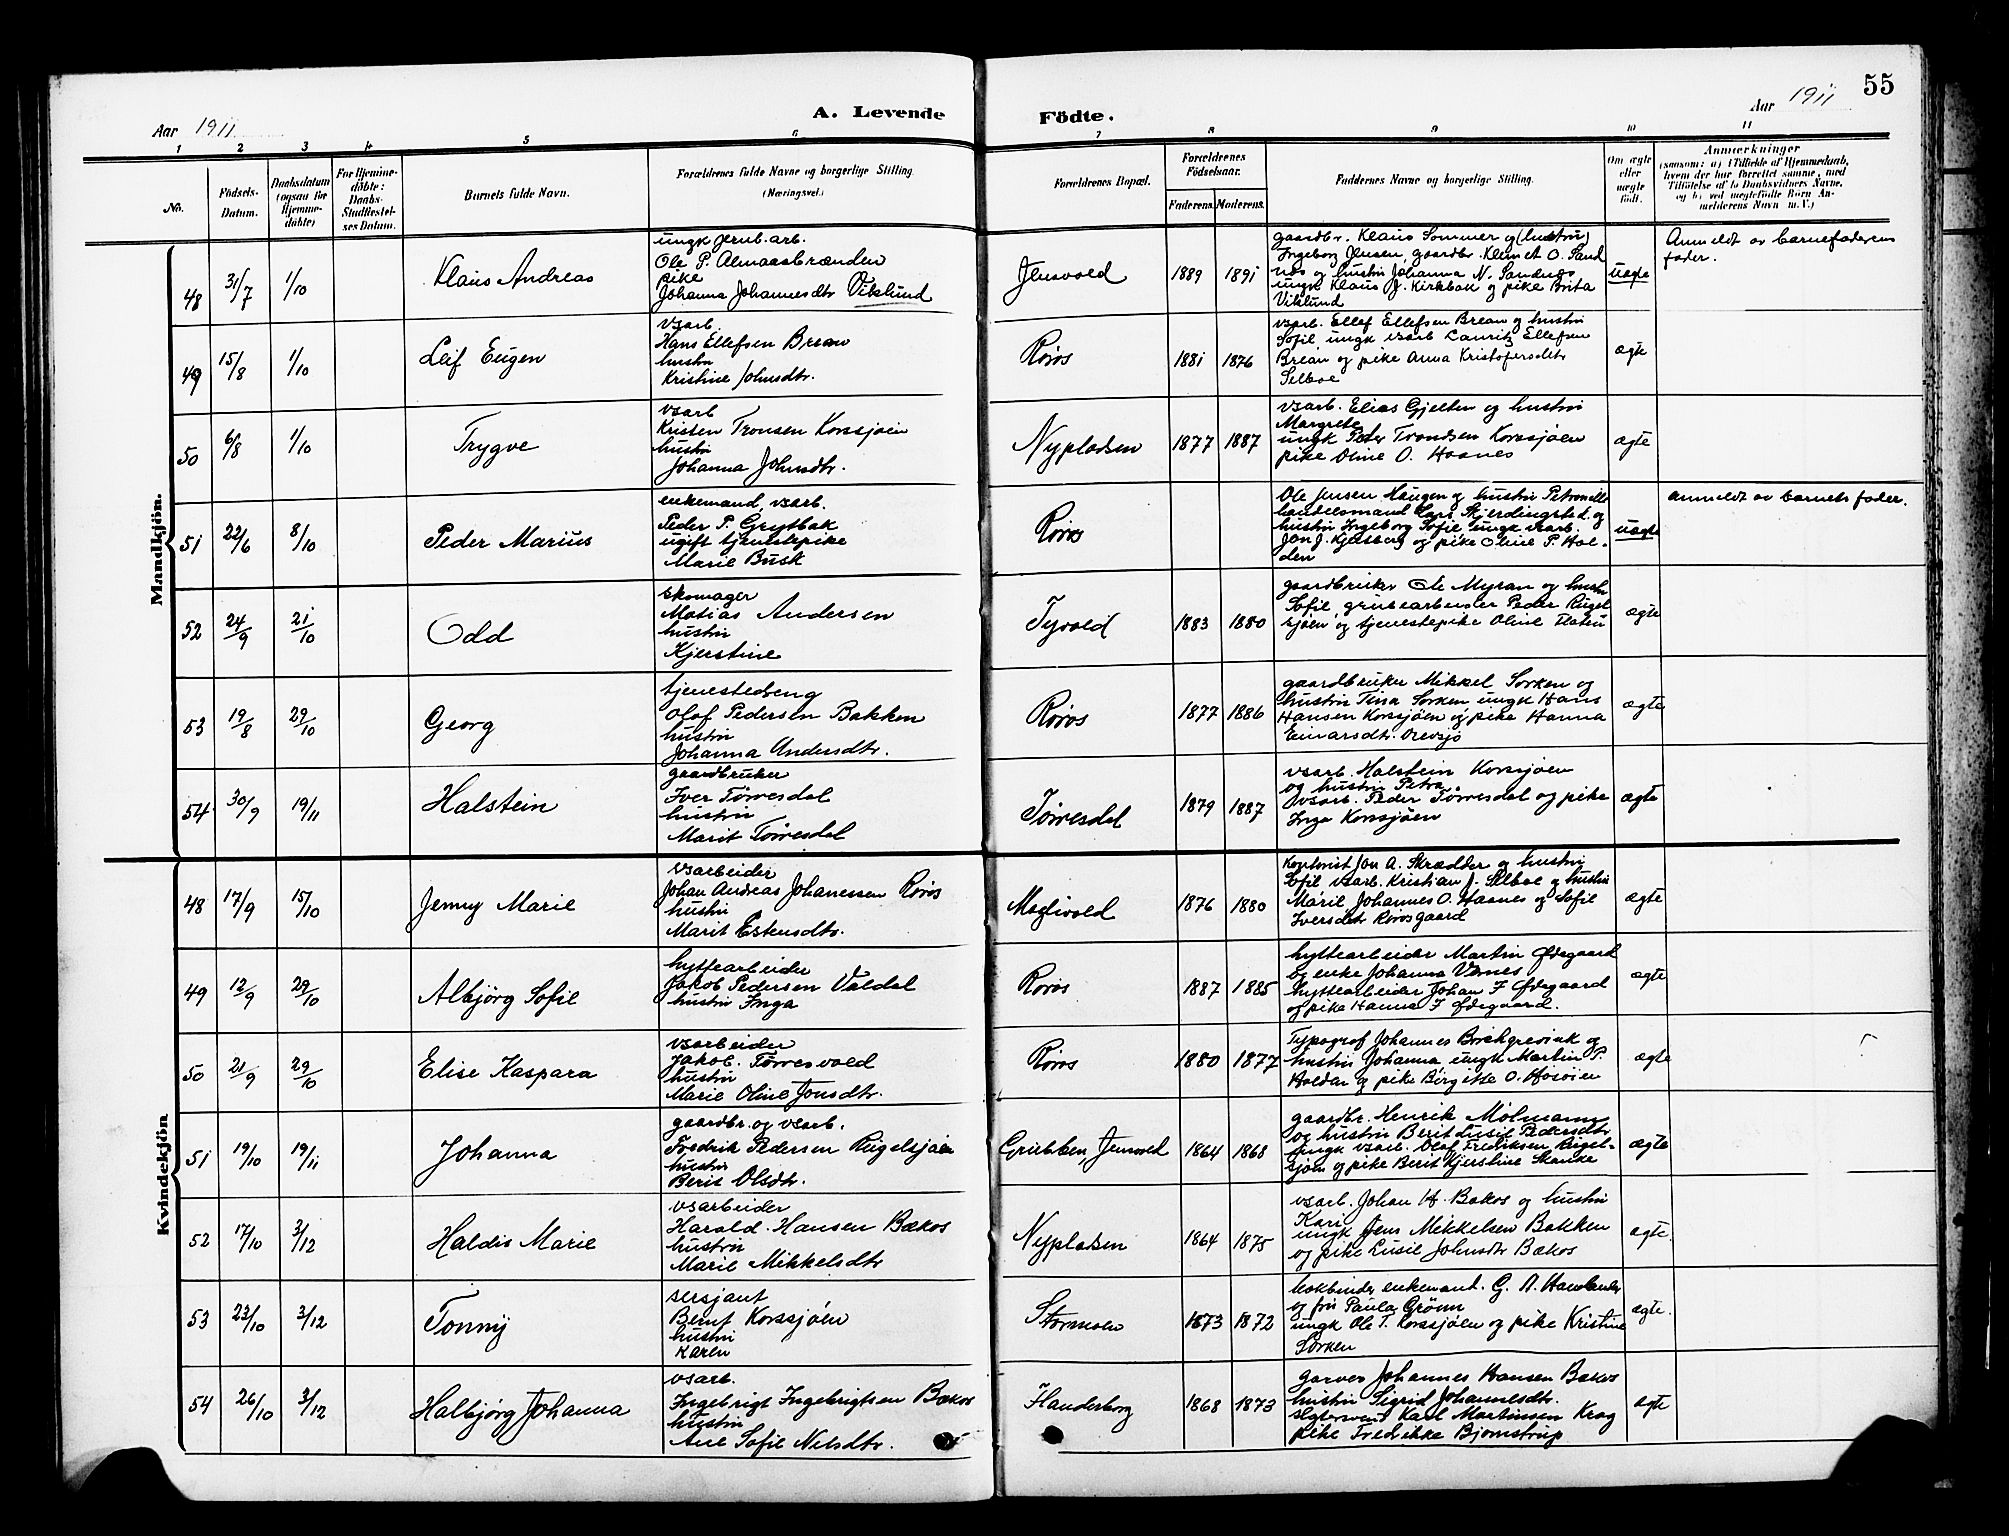 55
Aar 1911
A. Levende Födte.
Aar 1911
1 2 3 4 5 6 7 8 9 10 11
No.
Födsels-Datum.
Daabsdatum (ogsaa for Hjemme-döbte)
For Hjemme-döbte: Daabs-Stadfæstel-ses Datum.
Barnets fulde Navn.
Forældrenes fulde Navne og borgerlige Stilling (Næringsvei.)
Forældrenes Bopæl.
Forældrenes Födselsaar.
Faderens. Moderens.
Faddernes Navne og borgerlige Stilling.
Om ægte eller uægte födt.
Anmærkninger
(saasom: a) i Tilfælde af Hjemmedaab,
hvem der har forrettet samme, med
Tilföielse af to Daabsvidners Navne,
og b) ved uægtefödte Börn An-
melderens Navn m. V.)
Mandkjön.
48 31/7 1/10 Klaus Andreas
ungk jernb. arb.
Ole P. Almaasbrænden
pike
Johanna Johannesdtr Viklund
Jensvold 1889 1891
gaardbr. Klaus Sommer og (hustru)
Ingeborg Jensen, gaardbr. Klemet O. Sand
nes og hustru Johanna N. Sandnes
ungk Klaus J. Kirkbak og pike Brita
Viklund
uægte
Anmeldt av barnefaderens
fader.
49 15/8 1/10 Leif Eugen
vsarb.
Hans Ellefsen Brean
hustru
Kristine Johnsdtr.
Røros 1881 1876
vsarb. Ellef Ellefsen Brean og hustru
Sofie, ungk vsarb Lauritz Ellefsen
Brean og pike Anna Kristofersdtr
Selboe
ægte
50 6/8 1/10 Trygve
vsarb
Kristen Tronsen Korssjøen
hustru
Johanna Johnsdtr.
Nypladsen 1877 1887
vsarb. Elias Gjelten og hustru
Margrete
ungk Peder Trondsen Korssjøen
pike Oline O. Haanes
ægte
51 22/6 8/10 Peder Marius
enkemand, vsarb.
Peder P. Grytbak
ugift tjenestepike
Marie Busk
Røros
Ole Jensen Haugen og hustru Petronille
handelsmand Lars Skjerdingsted og
hustru Ingeborg Sofie ungk vsarb.
Jon J. Kjelsberg og pike Oline P. Hol-
den
uægte
anmeldt av barnets fader.
52 24/9 21/10 Odd
skomager
Matias Andersen
hustru
Kjerstine
Tyvold 1883 1880
gaardbruker Ole Myran og hustru
Sofie, grubearbeider Peder Rugel
sjøen og tjenestepike Oline
ægte
53 19/8 29/10 Georg
tjenestedreng
Olof Pedersen Bakken
hustru
Johanna Andersdtr.
Røros 1877 1886
gaardbruker Mikkel Sorken og
hustru Tina Sorken ungk Hans
Hansen Korssjøen og pike Hanna
Einarsdtr. Orevsjø
ægte
54 30/9 19/11 Halstein
gaardbruker
Iver Tørresdal
hustru
Marit Tørresdal
Tørresdal 1879 1887
vsarb. Halstein Korssjøen
og hustru Petra
vsarb. Peder Tørresdal og pike
Inga Korssjøen
ægte
Kvindekjön
48 17/9 15/10 Jenny Marie
vsarbeider
Johan Andreas Johanessen Røros
hustru
Marit Estensdtr.
Møglivold 1876 1880
Kontorist Jon A. Skrædder og hustru
Sofie vsarb. Kristian J. Selboe og hustru
Marie Johannes O. Haanes og Sofie
Iversdtr Rørosgaard
ægte
49 12/9 29/10 Albjörg Sofie
hyttearbeider
Jakob Pedersen Valdal
hustru Inga
Røros 1887 1885
hyttearbeider Martin Ødegaard
og enke Johanna Vernes
hyttearbeider Johan F Ødegaard
og pike Hanna F Ødegaard.
ægte
50 21/9 29/10 Elise Kaspara
vsarbeider
Jakob. Tørresvold
hustru
Marie Oline Jonsdtr.
Røros 1880 1877
Typograf Johannes Borchgrevink og
hustru Johanna ungk Martin P.
Holdan og pike Birgitte O. Hosøien
ægte
51 19/10 19/11 Johanna
gaardbr. og vsarb.
Fredrik Pedersen Rugelsjøen
hustru
Berit Olsdtr.
Grubben, Jensvold 1864 1868
gaardbr. Henrik Molmann
og hustru Berit Lusie Pedersdtr
ungk vsarb. Olaf Fredriksen Rugel-
sjøen og pike Berit Kjerstine Skanke
ægte
52 17/10 3/12 Haldis Marie
vsarbeider
Harald Hansen Bækos
hustru
Marie Mikkelsdtr
Nypladsen 1864 1875
vsarb. Johan H. Bækos og hustru
Kari
ungk Jens Mikkelsen Bakken
og pike Lusie Johnsdtr Bækos
ægte.
53 23/10 3/12 Tonny
sersjant
Bernt Korssjöen
hustru
Karen
Stormoen 1873 1872
bokbinder enkemant. G. A. Havelander
og frü Paula Grönn
ungk Ole T. Korssjöen og pike Kristine
Sorken
ægte.
54 26/10 3/12 Halbjørg Johanna
vsarb.
Ingebrigt Ingebrigtsen Bækos
hustru
Ane Sofie Nelsdtr.
Flanderborg 1868 1873
garver Johannes Hansen Bækos
hustru Sigrid Johannesdtr.
slgtersvend Karl Martinsen Krog
pike Fredrikke Bjornstrup
ægte